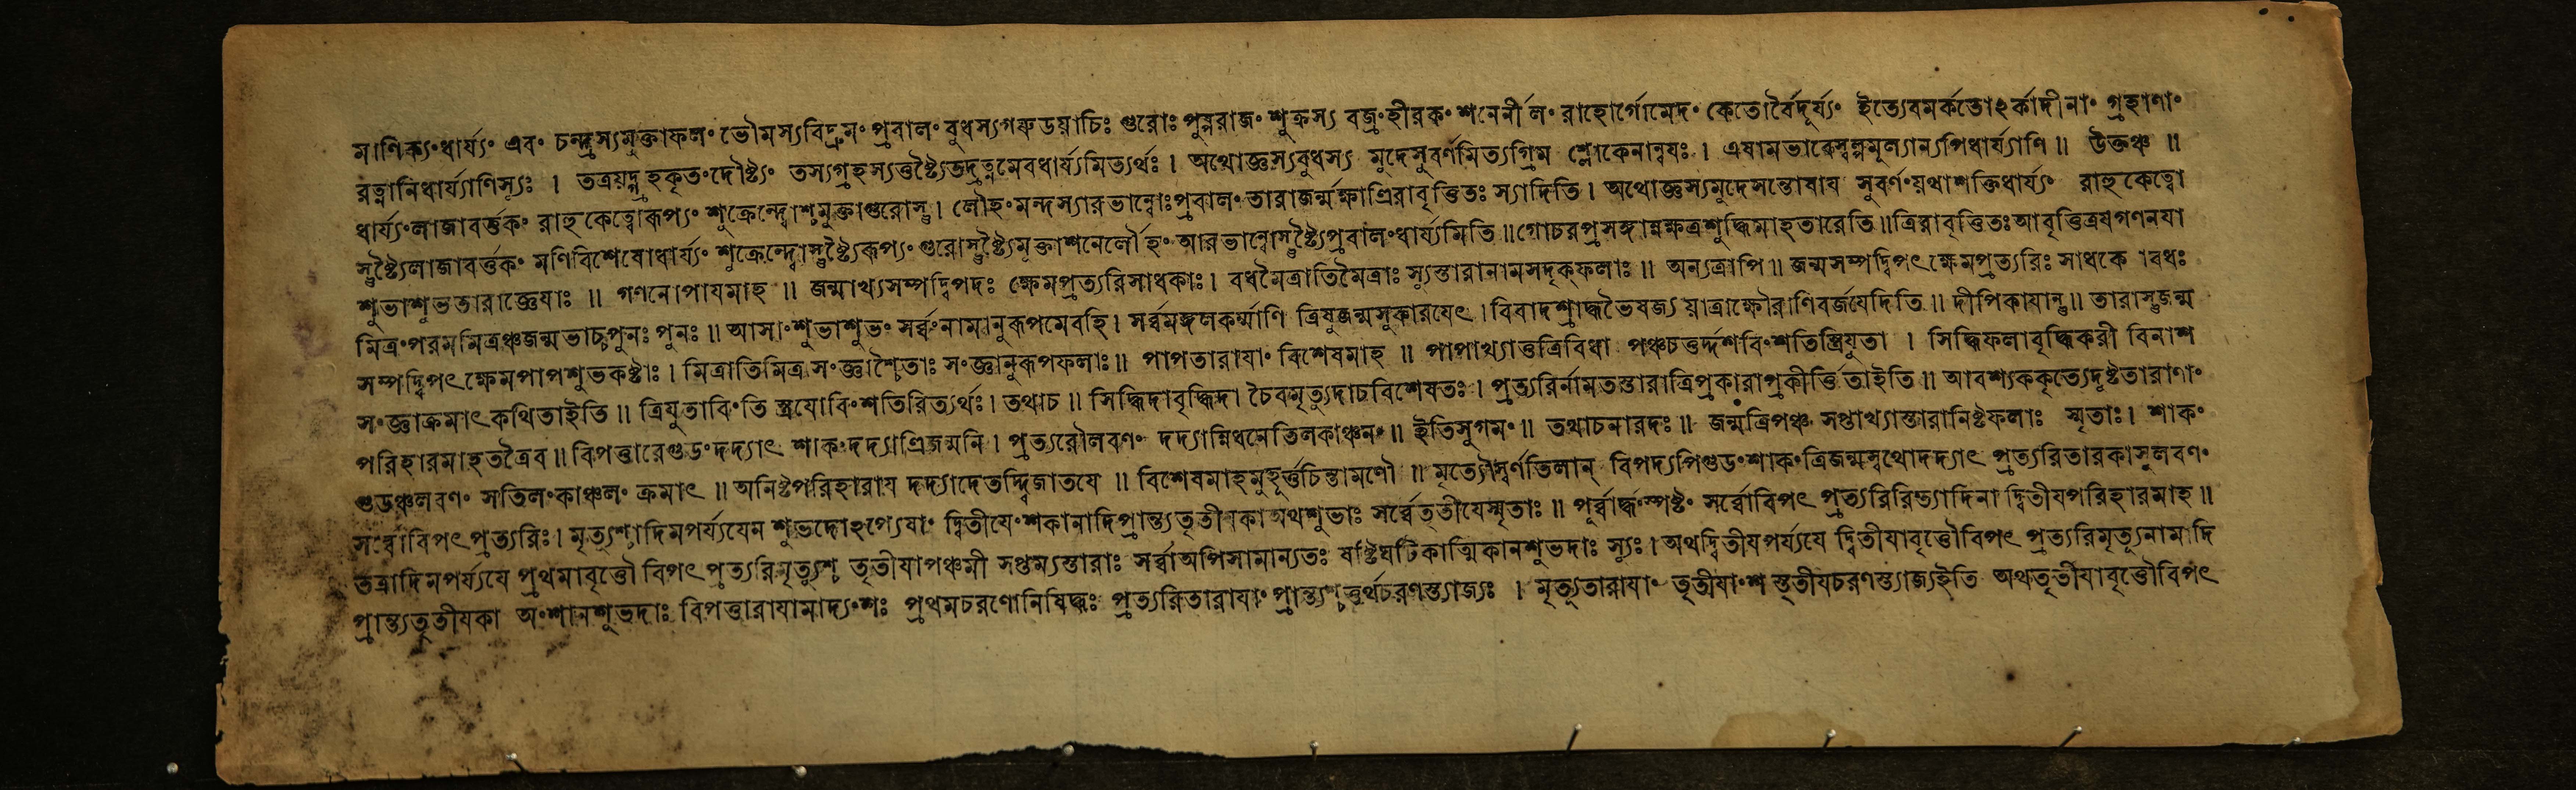 মাণিক্যংধার্য্যং এবং চন্দ্রস্যমুক্তাফলং ভৌমস্যবিদ্রুমং প্রবালং বুধস্যগরুডয়াচিঃ গুরোঃ পুষ্পরাজং শুক্রস্য বজ্রংহীরকং শনের্নীলং রাহোর্গোমেদং কেতোর্বৈদূর্য্যং ইত্যেবমর্কতোঽর্কাদীনাং গ্রহাণাং
রত্নানিধার্য্যাণিস্যুঃ । তত্রয়দ্গ্রহকৃতংদৌষ্ট্যং তস্যগ্রহস্যতুষ্ট্যৈতদ্রত্নমেবধার্য্যমিত্যর্থঃ । অথোজ্ঞস্যবুধস্য মুদেসুবর্ণমিত্যগ্রিম শ্লোকেনান্বয়ঃ । এষামভাবেস্বল্পমূল্যান্যপিধার্য্যাণি ॥ উক্তঞ্চ ॥
ধার্য্যংলাজাবর্ত্তকং রাহুকেত্বোরূপ্যং শুক্রেন্দ্বোশ্চমুক্তাগুরোস্তু । লৌহংমন্দস্যারভান্বোঃপ্রবালং তারাজর্ন্মর্ক্ষাত্রিরাবৃত্তিতঃ স্যাদিতি । অথোজ্ঞস্যমুদেসন্তোষায় সুবর্ণংয়থাশক্তিধার্য্যং রাহুকেত্বো
স্তুষ্ট্যৈলাজাবর্ত্তকং মণিবিশেষোধার্য্যং শুক্রেন্দ্বোস্তুষ্ট্যৈরূপ্যং গুরোস্তুষ্ট্যৈমুক্তাশনের্লৌহং আরভান্বোস্তুষ্ট্যৈপ্রবালংধার্য্যমিতি ॥ গোচরপ্রসঙ্গান্নক্ষত্রশুদ্ধিমাহতারেতি ॥ ত্রিরাবৃত্তিতঃআবৃত্তিত্রয়গণনয়া
শুভাশুভতারাজ্ঞেয়াঃ ॥ গণনোপায়মাহ ॥ জন্মাখ্যসম্পদ্বিপদঃ ক্ষেমপ্রত্যরিসাধকাঃ । বধমৈত্রাতিমৈত্রাঃ স্যুস্তারানামসদৃক্ফলাঃ ॥ অন্যত্রাপি ॥ জন্মসম্পদ্বিপৎক্ষেমপ্রত্যরিঃ সাধকো বধঃ
মিত্রংপরমমিত্রঞ্চজন্মভাচ্চপুনঃ পুনঃ ॥ আসাংশুভাশুভং সর্ব্বংনামানুরূপমেবহি । সর্ব্বমঙ্গলকর্ম্মাণি ত্রিষুজন্মসুকারয়েৎ । বিবাদশ্রাদ্ধভৈষজ্য য়াত্রাক্ষৌরাণিবর্জয়েদিতি ॥ দীপিকায়ান্তু ॥ তারাস্তুজন্ম
সম্পদ্বিপৎক্ষেমপাপশুভকষ্টাঃ । মিত্রাতিমিত্র সংজ্ঞাশ্চৈতাঃ সংজ্ঞানুরূপফলাঃ ॥ পাপতারায়াং বিশেষমাহ ॥ পাপাখ্যাতুত্রিবিধা পঞ্চচতুর্দ্দশবিংশতিস্ত্রিযুতা । সিদ্ধিফলাবৃদ্ধিকরী বিনাশ
সংজ্ঞাক্রমাৎকথিতাইতি ॥ ত্রিযুতাবিংতি স্ত্রয়োবিংশতিরিত্যর্থঃ । তথাচ ॥ সিদ্ধিদাবৃদ্ধিদা চৈবমৃত্যুদাচবিশেষতঃ । প্রত্যরির্নামতস্তারাত্রিপ্রকারাপ্রকীর্ত্তিতাইতি ॥ আবশ্যককৃত্যেদুষ্টতারাণাং
পরিহারমাহতত্রৈব ॥ বিপত্তারেগুডংদদ্যাৎ শাকংদদ্যাত্রিজন্মনি । প্রত্যরৌলবণং দদ্যান্নিধনেতিলকাঞ্চনং ॥ ইতিসুগমং ॥ তথাচনারদঃ ॥ জন্মত্রিপঞ্চ সপ্তাখ্যাস্তারানিষ্টফলাঃ স্মৃতাঃ । শাকং
গুডঞ্চলবণং সতিলংকাঞ্চনং ক্রমাৎ ॥ অনিষ্টপরিহারায় দদ্যাদেতদ্দ্বিজাতয়ে ॥ বিশেষমাহমুহূর্ত্তচিন্তামণৌ ॥ মৃত্যৌস্বর্ণতিলান্ বিপদ্যপিগুডংশাকংত্রিজন্মস্বথোদদ্যাৎ প্রত্যরিতারকাসুলবণং
সর্ব্বোবিপৎপ্রত্যরিঃ । মৃত্যুশ্চাদিমপর্য্যয়েন শুভদোঽপ্যেষাং দ্বিতীয়েংশকানাদিপ্রান্ত্যতৃতীয়কা অথশুভাঃ সর্ব্বেতৃতীয়েস্মৃতাঃ ॥ পূর্ব্বার্দ্ধংস্পষ্টং সর্ব্বোবিপৎ প্রত্যরিরিত্যাদিনা দ্বিতীয়পরিহারমাহ ॥
তত্রাদিমপর্য্যয়ে প্রথমাবৃত্তৌ বিপৎপ্রত্যরিমৃত্যুশ্চ তৃতীয়াপঞ্চমী সপ্তম্যস্তারাঃ সর্ব্বাঅপিসামান্যতঃ ষষ্টিঘটিকাত্মিকানশুভদাঃ স্যুঃ । অথদ্বিতীয়পর্য্যয়ে দ্বিতীয়াবৃত্তৌবিপৎ প্রত্যরিমৃত্যুনামাদি
প্রান্ত্যতৃতীয়কা অংশানশুভদাঃ বিপত্তারায়ামাদ্যংশঃ প্রথমচরণোনিষিদ্ধঃ প্রত্যরিতারায়াং প্রান্ত্যশ্চতুর্থচরণস্ত্যাজ্যঃ । মৃত্যুতারায়াং তৃতীয়াংশ স্তৃতীয়চরণস্ত্যাজ্যইতি অথতৃতীয়াবৃত্তৌবিপৎ